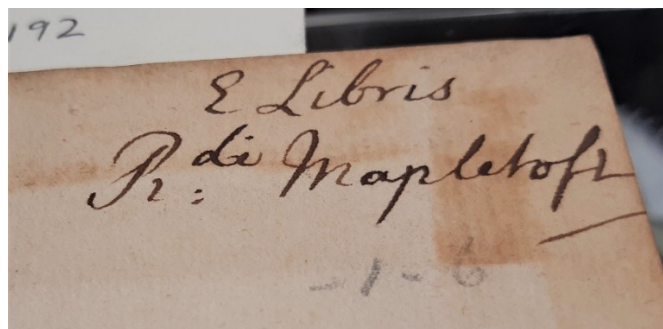 192
E Libris
R:di Mapletoft
-1-6